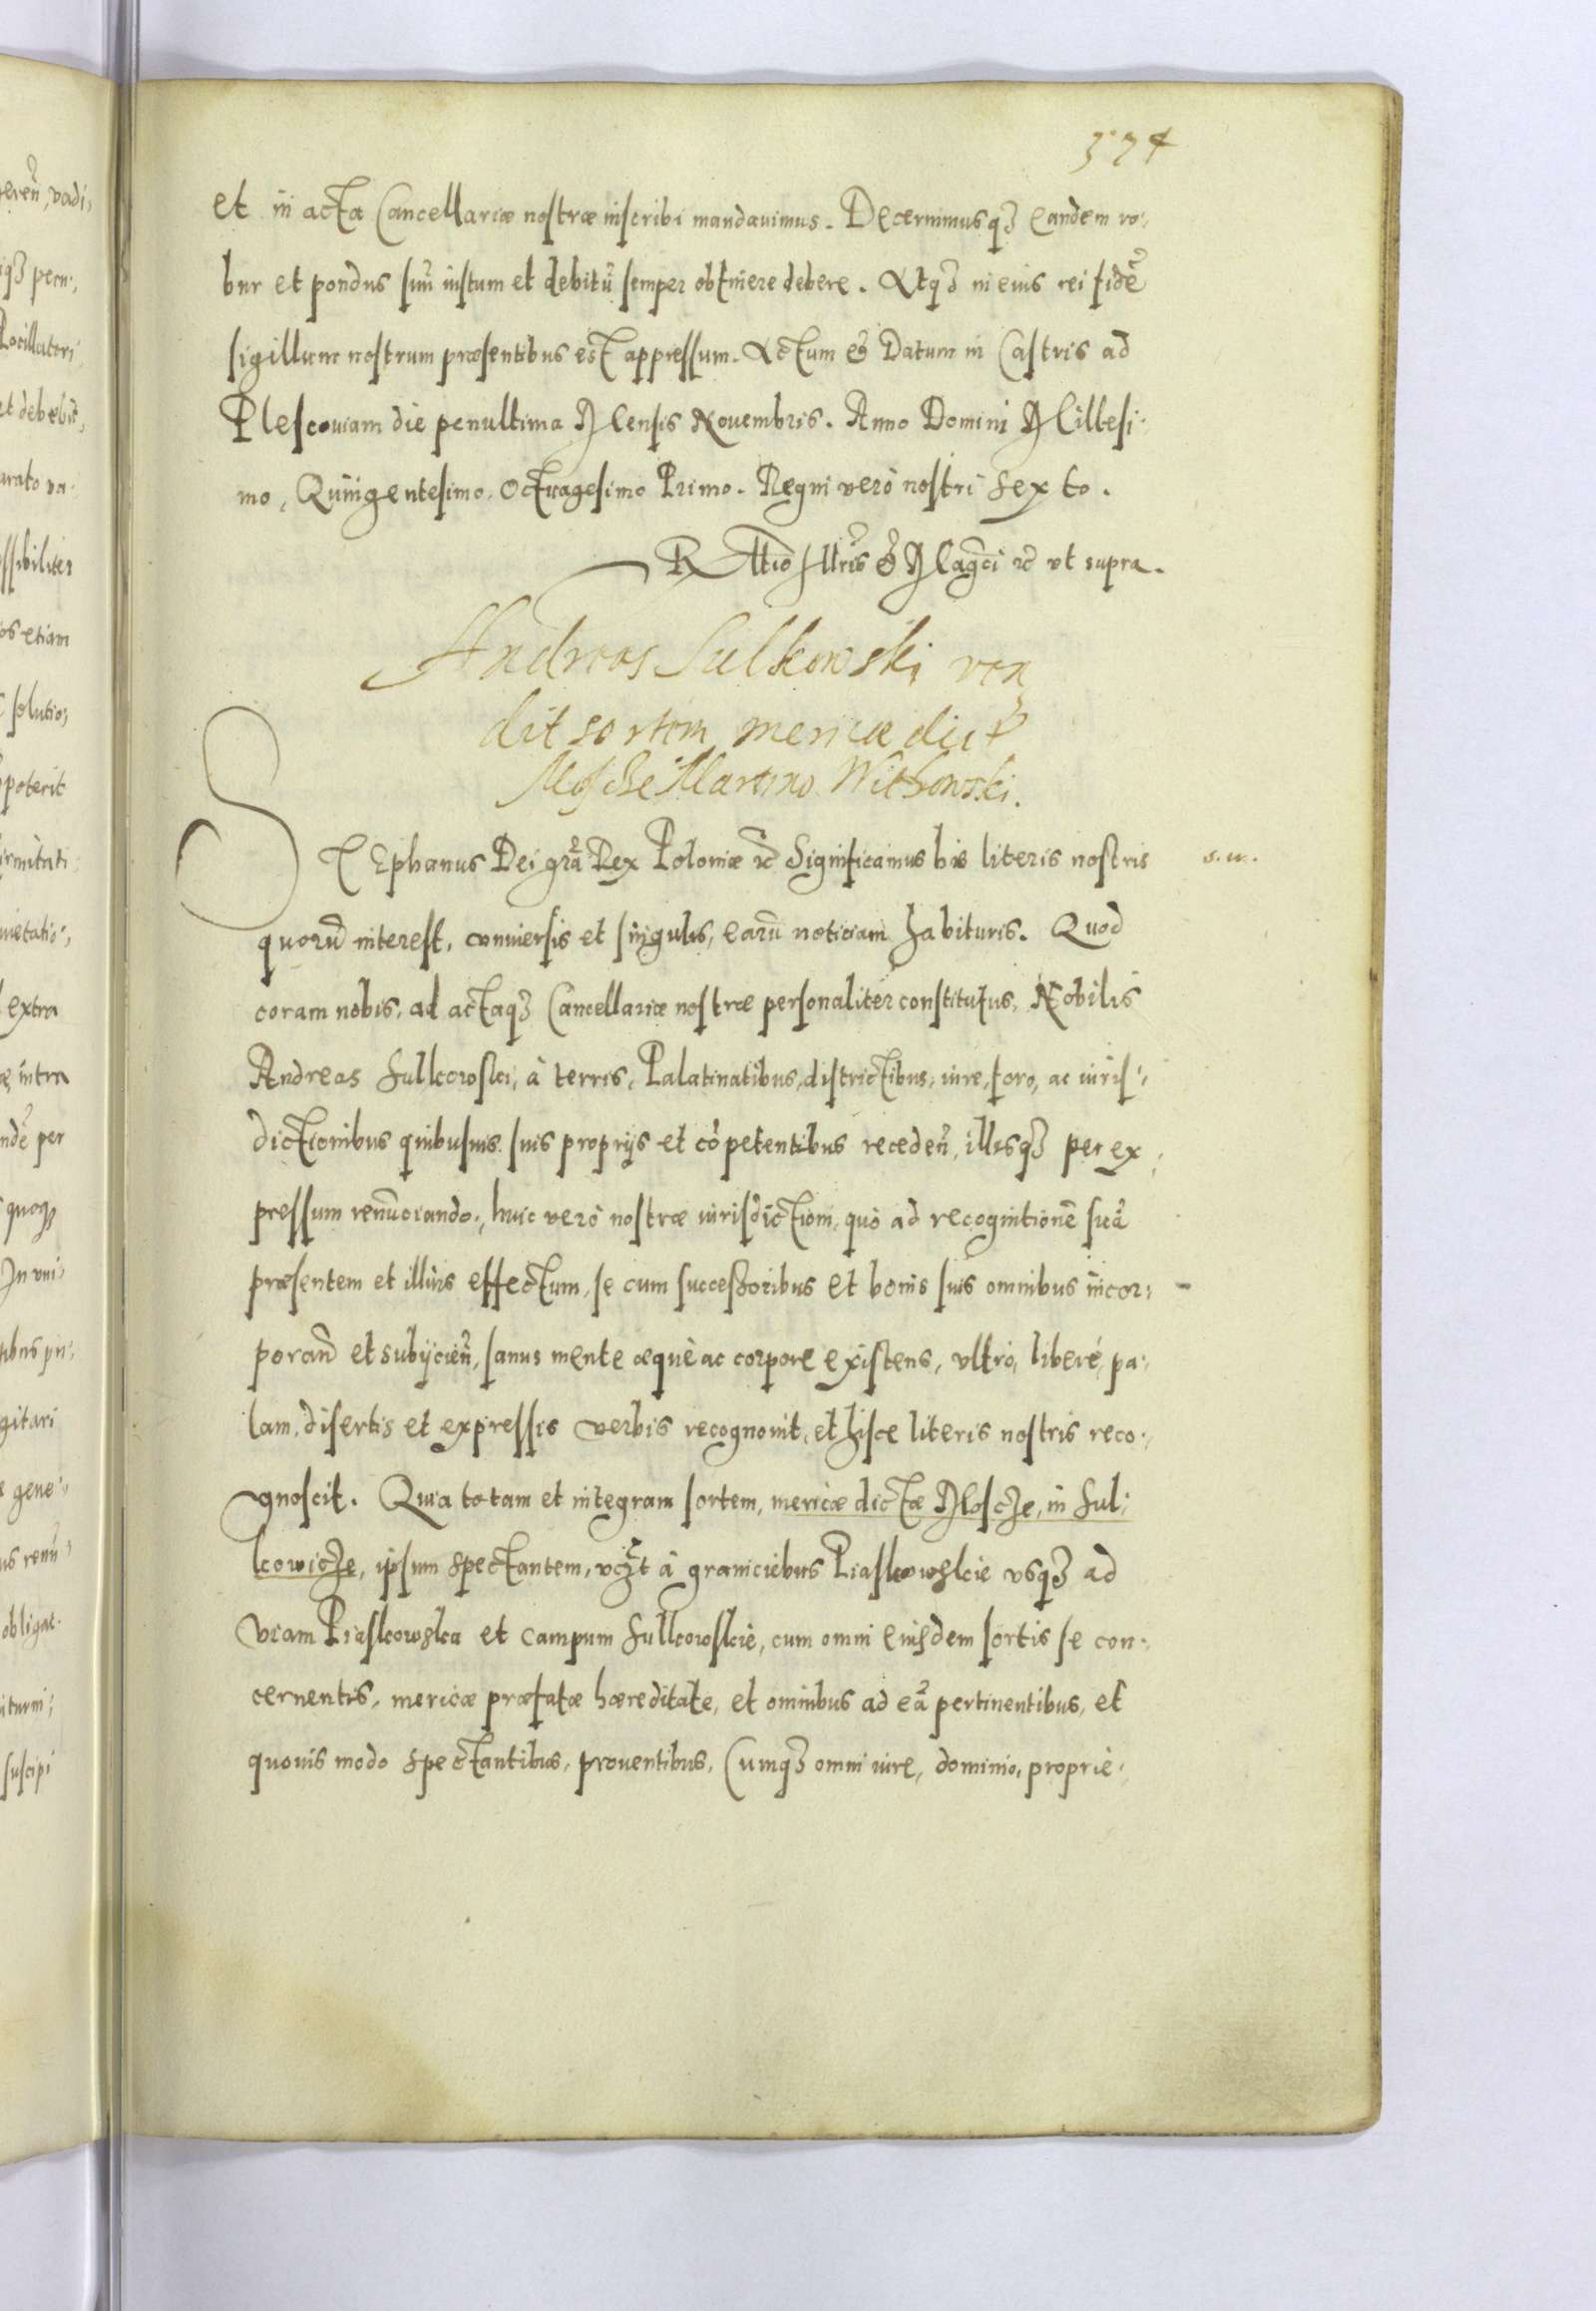 574
et in acta Cancellariæ nostræ inscribi mandauimus. Decernimusq₃ eandem ro-
bur et pondus suũ iustum et debitũ semper obtinere debere. In eius rei fidẽ
sigillum nostrum præsentibus est appressum. Actum & Datum in Castris ad
Plescouiam die penultima Mensis Nouembris. Anno Domini Millesi-
mo, Quingentesimo, Octuagesimo Primo. Regni verò nostri Sexto.
Rtio Illris & Magci rc vt supra.
Andreas Sulkowski ven
dit sortem mericæ dict
Mosche Martino Witkowski.
STEphanus Dei grã Rex Poloniæ rc Significamus his literis nostris
s. w.
quorũ interest, vniuersis et singulis, earũ noticiam habituris. Quod
coram nobis, ad actaq₃ Cancellariæ nostræ personaliter constitutus, Nobilis
Andreas Sulkowski, à terris, Palatinatibus, districtibus, iure, foro, ac iuris-
dictionibus quibusuis suis proprijs et cõpetentibus receden̄, illisq₃ per ex-
pressum renũciando, huic verò nostræ iurisdictioni, quò ad recognitionẽ suã
præsentem et illius effectum, se cum successoribus et bonis suis omnibus incor-
poran̄ et subijcien̄, sanus mente æquè ac corpore existens, vltrò, liberè, pa-
lam, disertis et expressis verbis recognouit, et hisce literis nostris reco-
gnoscit. Quia totam et integram sortem, mericæ dictæ Mosche, in Sul-
kowiche, ipsum spectantem, vczt à graniciebus Piaskowskie vsq₃ ad
viam Piaskowska et campum Sulkowskie, cum omni eiusdem sortis se con-
cernentis, mericæ præfatæ hæreditate, et omnibus ad eã pertinentibus, et
quouis modo spectantibus, prouentibus, Cumq₃ omni iure, dominio, proprie-